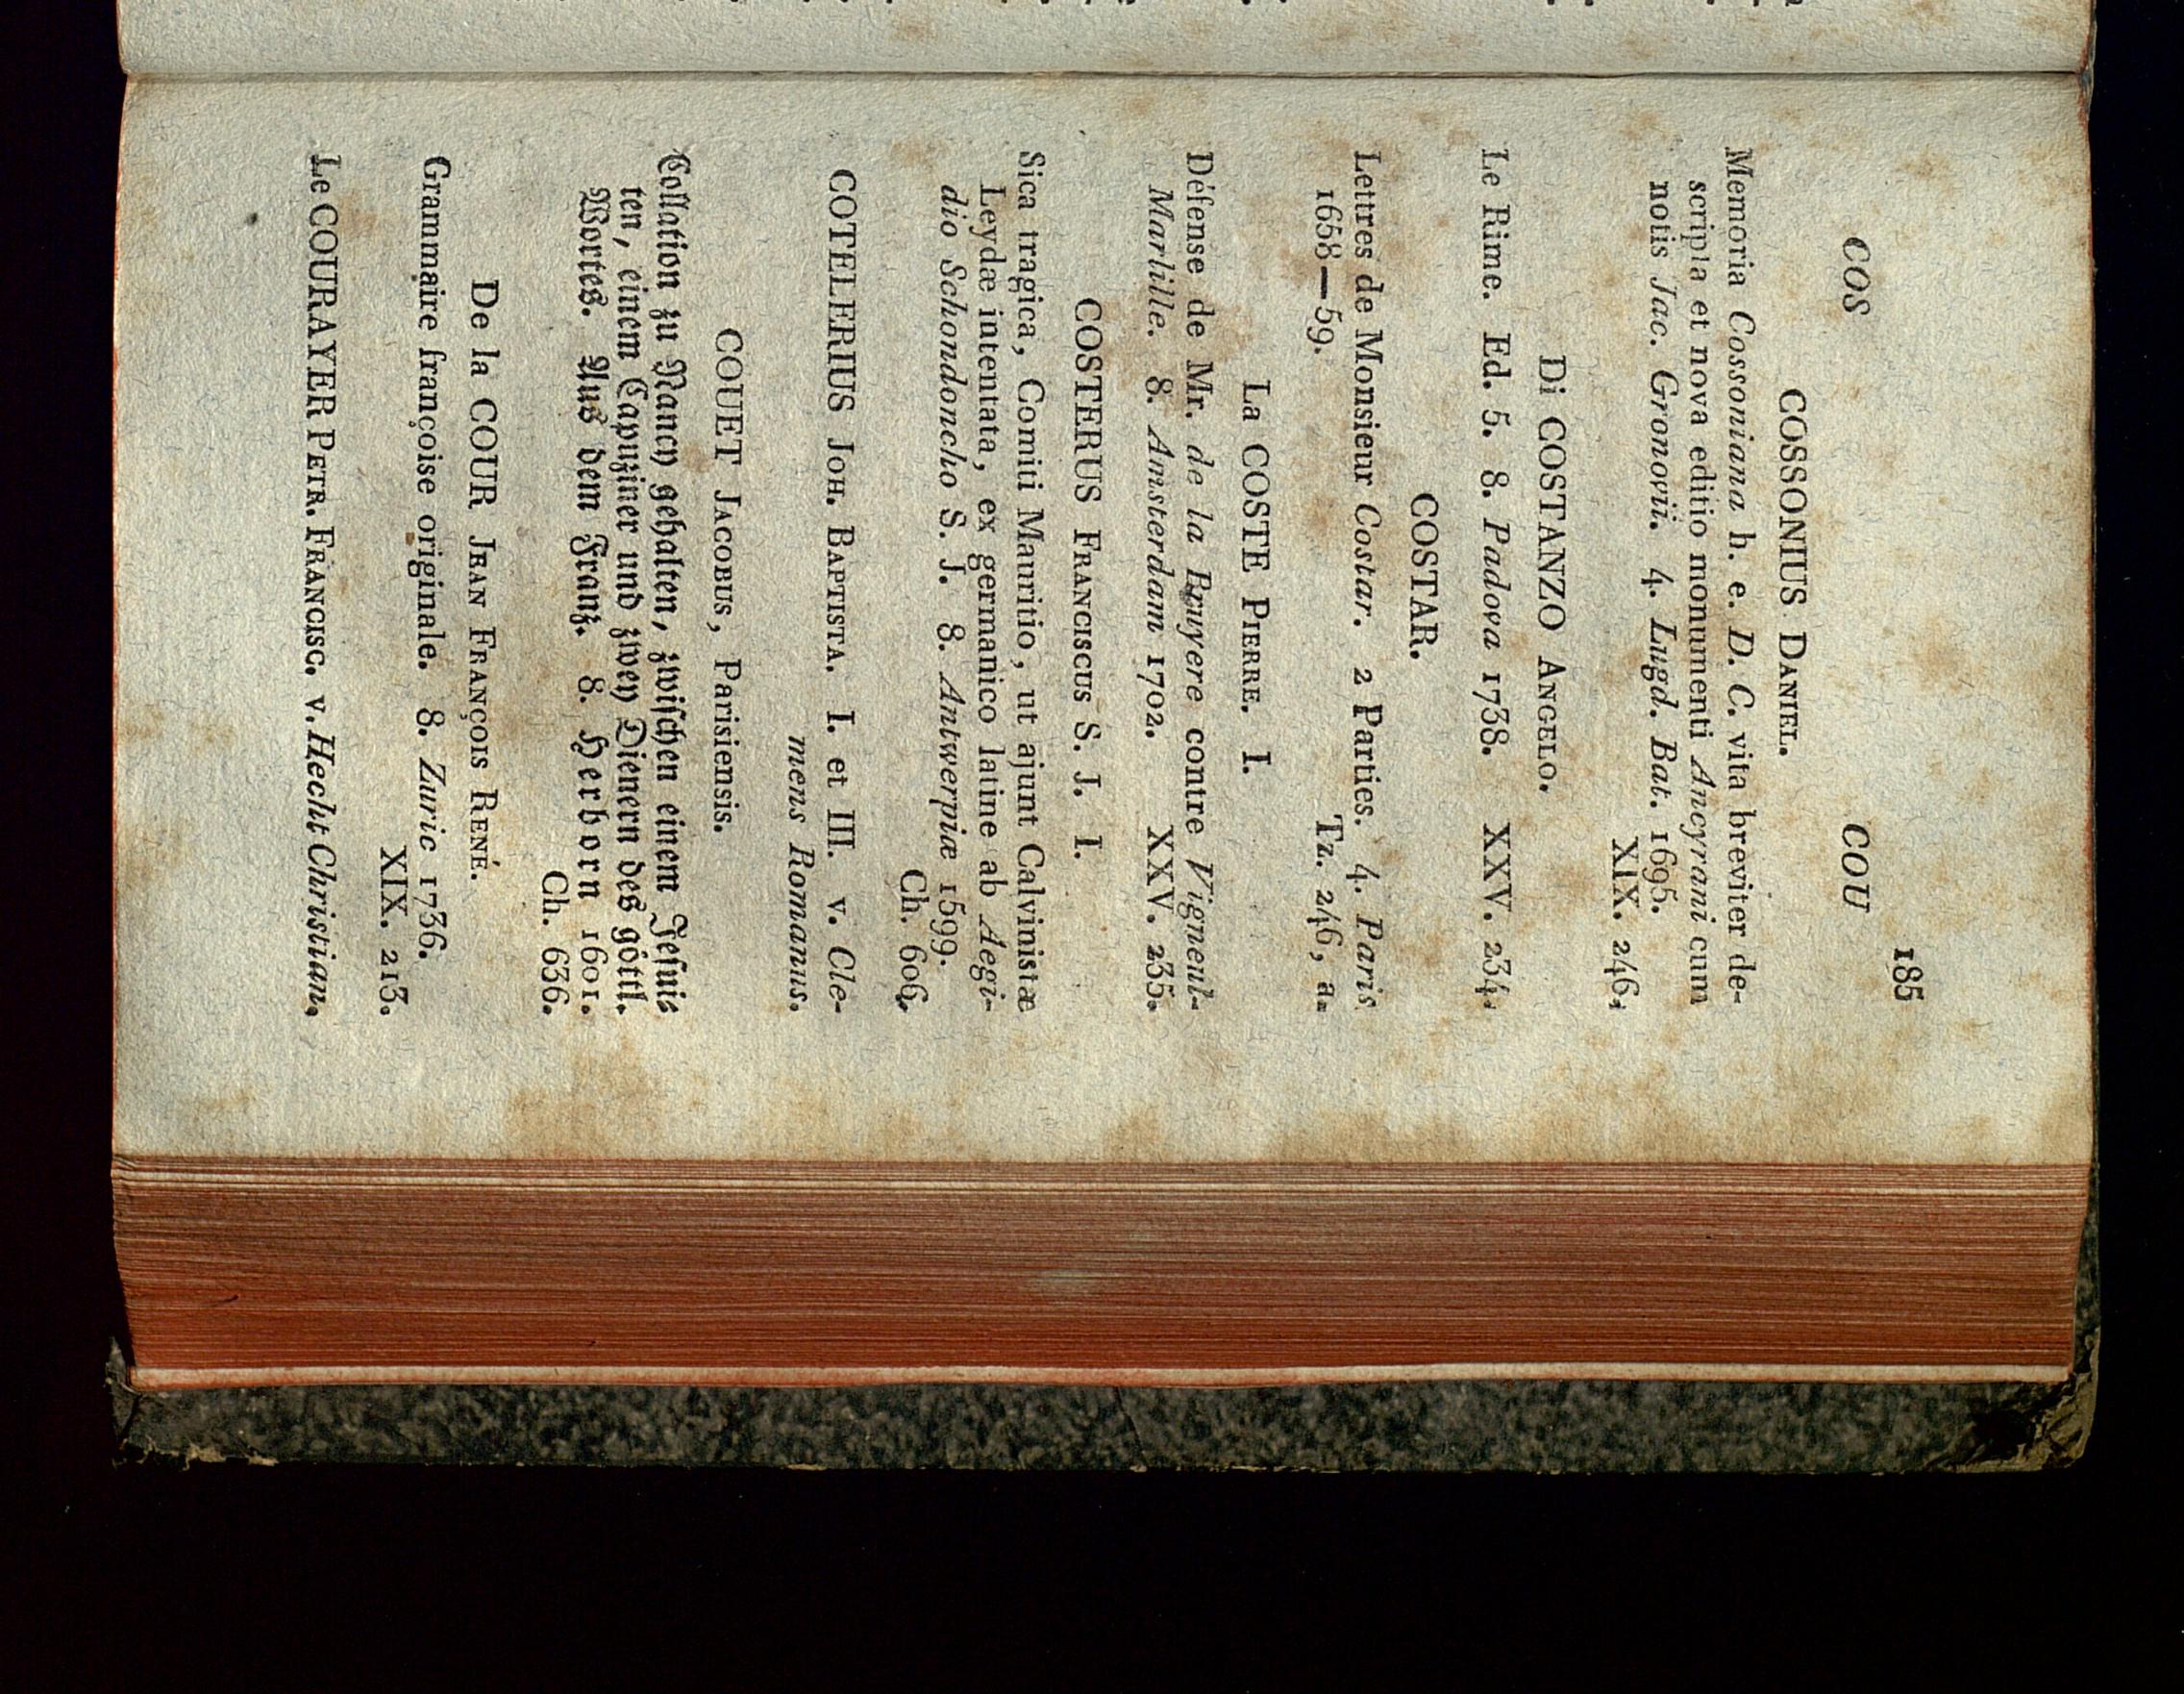 185
COS COU
COSSONIUS DANIEL.
Memoria Cossoniana h. e. D. C. vita breviter de-
scripta et nova editio monumenti Ancyrani cum
notis Jac. Gronovii. 4. Lugd. Bat. 1695.
XIX. 246.
Di COSTANZO ANGELO.
Le Rime. Ed. 5. 8. Padova 1738. XXV. 234.
COSTAR.
Lettres de Monsieur Costar. 2 Parties. 4. Paris
1658—59. Tz. 246, a.
La COSTE PIERRE. I.
Défense de Mr. de la Bruyere contre Vigneul-
Marlille. 8. Amsterdam 1702. XXV. 235.
COSTERUS FRANCISCUS S. J. I.
Sica tragica, Comiti Mauritio, ut ajunt Calvinistæ
Leydæ intentata, ex germanico latine ab Aegi-
dio Schondoncho S. J. 8. Antwerpiæ 1599.
Ch. 606.
COTELERIUS JOH. BAPTISTA. I. et III. v. Cle-
mens Romanus.
COUET JACOBUS, Parisiensis.
Collation zu Nancy gehalten, zwischen einem Jesui-
ten, einem Capuziner und zwey Dienern des göttl.
Wortes. Aus dem Franz. 8. Herborn 1601.
Ch. 636.
De la COUR JEAN FRANÇOIS RENÉ.
Grammaire françoise originale. 8. Zuric 1736.
XIX. 213.
Le COURAYER PETR. FRANCISC. v. Hecht Christian.